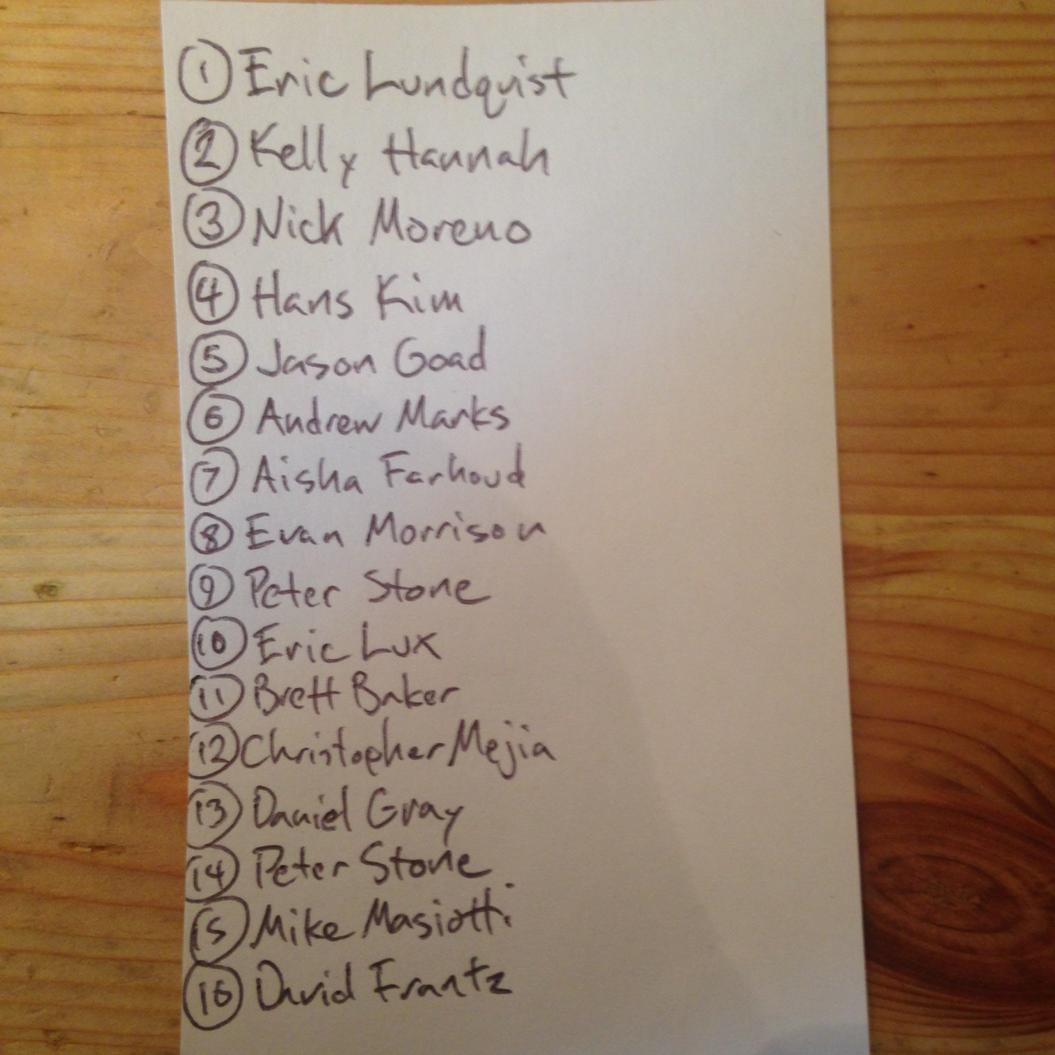 1 Eric Lundquist
2 Kelly Hannah
3 Nick Moreno
4 Hans Kim
5 Jason Goad
6 Andrew Marks
7 Aisha Farhoud
8 Evan Morrison
9 Peter Stone
10 Eric Lux
11 Brett Baker
12 Christopher Mejia
13 Daniel Gray
14 Peter Stone
15 Mike Masiotti
16 David Frantz